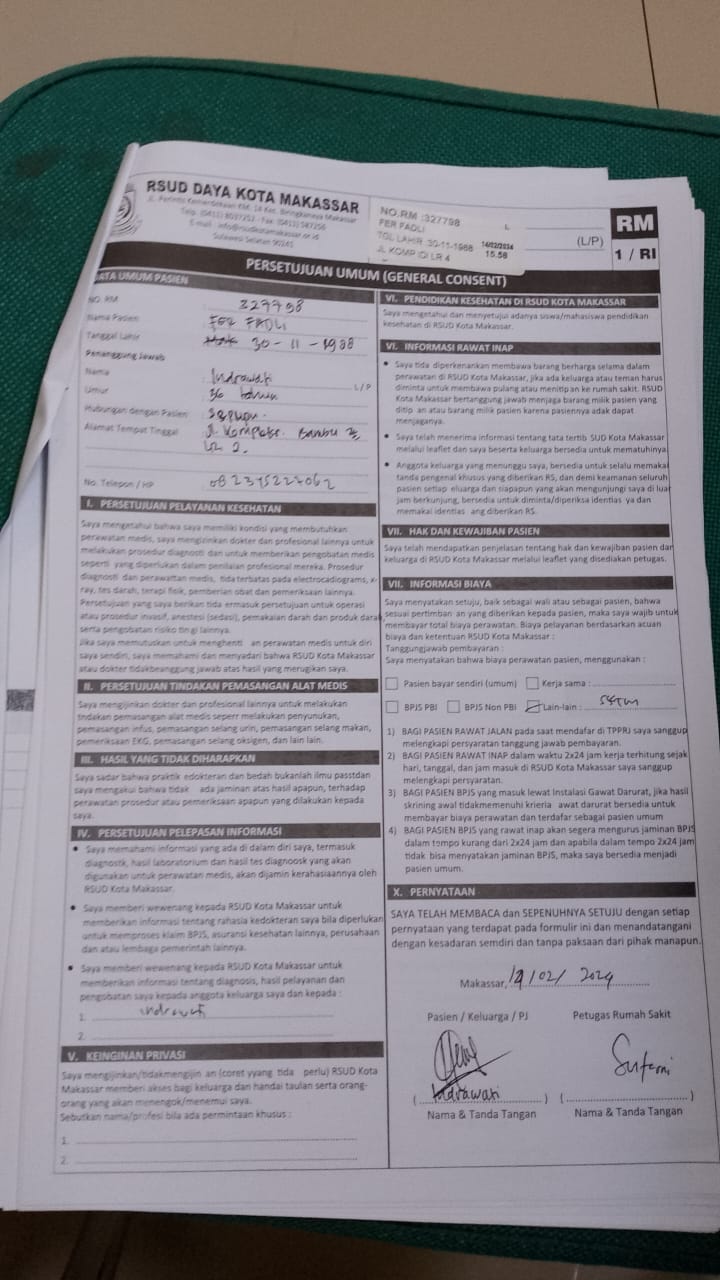 RSUD DAYA KOTA MAKASSAR
Jl. Perintis Kemerdekaan KM. 14 Kec. Biringkanaya Makassar
Sulawesi Selatan 90241
NO.RM :327798 L
FER PADLI
TGL LAHIR 30-11-1988 14/02/2024
JL KOMP IDI LR 4 15.58
(L/P)
RM
1 / RI
PERSETUJUAN UMUM (GENERAL CONSENT)
DATA UMUM PASIEN
NO. RM 327798
Nama Pasien FER FADLI
Tanggal Lahir 30 - 11 - 1988
Penanggung Jawab
Nama Indrawati L/P
Umur 36 tahun
Hubungan dengan Pasien Sepupu.
Alamat Tempat Tinggal Jl. Kompleks.
No. Telepon / HP
I. PERSETUJUAN PELAYANAN KESEHATAN
Saya mengetahui bahwa saya memiliki kondisi yang membutuhkan
perawatan medis, saya mengizinkan dokter dan profesional lainnya untuk
melakukan prosedur diagnosti dan untuk memberikan pengobatan medis
seperti yang diperlukan dalam penilaian profesional mereka. Prosedur
diagnosti dan perawattan medis, tida terbatas pada electrocadiograms, x-
ray, tes darah, terapi fisik, pemberian obat dan pemeriksaan lainnya.
Persetujuan yang saya berikan tida ermasuk persetujuan untuk operasi
atau prosedur invasif, anestesi (sedasi), pemakaian darah dan produk darah
serta pengobatan risiko tingi lainnya.
Jika saya memutuskan untuk menghenti an perawatan medis untuk diri
saya sendiri, saya memahami dan menyadari bahwa RSUD Kota Makassar
atau dokter tidakbeanggung jawab atas hasil yang merugikan saya.
II. PERSETUJUAN TINDAKAN PEMASANGAN ALAT MEDIS
Saya mengijinkan dokter dan profesional lainnya untuk melakukan
tindakan pemasangan alat medis seperr melakukan penyunukan,
pemasangan infus, pemasangan selang urin, pemasangan selang makan,
pemeriksaan EKG, pemasangan selang oksigen, dan lain lain.
III. HASIL YANG TIDAK DIHARAPKAN
Saya sadar bahwa praktik edokteran dan bedah bukanlah ilmu passtdan
saya mengakui bahwa tidak ada jaminan atas hasil apapun, terhadap
perawatan prosedur atau pemeriksaan apapun yang dilakukan kepada
saya.
IV. PERSETUJUAN PELEPASAN INFORMASI
• Saya memahami informasi yang ada di dalam diri saya, termasuk
diagnostk, hasil laboratorium dan hasil tes diagnoosk yang akan
digunakan untuk perawatan medis, akan dijamin kerahasiaannya oleh
RSUD Kota Makassar.
• Saya memberi wewenang kepada RSUD Kota Makassar untuk
memberikan informasi tentang rahasia kedokteran saya bila diperlukan
untuk memproses klaim BPJS, asuransi kesehatan lainnya, perusahaan
dan atau lembaga pemerintah lainnya.
• Saya memberi wewenang kepada RSUD Kota Makassar untuk
memberikan informasi tentang diagnosis, hasil pelayanan dan
pengobatan saya kepada anggota keluarga saya dan kepada :
1. indrawati
2.
V. KEINGINAN PRIVASI
Saya mengijinkan/tidakmengijin an (coret yyang tida perlu) RSUD Kota
Makassar memberi akses bagi keluarga dan handai taulan serta orang-
orang yang akan menengok/menemui saya.
Sebutkan nama/profesi bila ada permintaan khusus :
1.
2.
VI. PENDIDIKAN KESEHATAN DI RSUD KOTA MAKASSAR
Saya mengetahui dan menyetujui adanya siswa/mahasiswa pendidikan
kesehatan di RSUD Kota Makassar.
VI. INFORMASI RAWAT INAP
• Saya tida diperkenankan membawa barang berharga selama dalam
perawatan di RSUD Kota Makassar, jika ada keluarga atau teman harus
diminta untuk membawa pulang atau menitip an ke rumah sakit. RSUD
Kota Makassar bertanggung jawab menjaga barang milik pasien yang
ditip an atau barang milik pasien karena pasiennya adak dapat
menjaganya.
• Saya telah menerima informasi tentang tata tertib SUD Kota Makassar
melalui leaflet dan saya beserta keluarga bersedia untuk mematuhinya.
• Anggota keluarga yang menunggu saya, bersedia untuk selalu memakai
tanda pengenal khusus yang diberikan RS, dan demi keamanan seluruh
pasien setiap eluarga dan siapapun yang akan mengunjungi saya di luar
jam berkunjung, bersedia untuk diminta/diperiksa identias ya dan
memakai identias ang diberikan RS.
VII. HAK DAN KEWAJIBAN PASIEN
Saya telah mendapatkan penjelasan tentang hak dan kewajiban pasien dan
keluarga di RSUD Kota Makassar melalui leaflet yang disediakan petugas.
VII. INFORMASI BIAYA
Saya menyatakan setuju, baik sebagai wali atau sebagai pasien, bahwa
sesuai pertimban an yang diberikan kepada pasien, maka saya wajib untuk
membayar total biaya perawatan. Biaya pelayanan berdasarkan acuan
biaya dan ketentuan RSUD Kota Makassar :
Tanggungjawab pembayaran :
Saya menyatakan bahwa biaya perawatan pasien, menggunakan :
Pasien bayar sendiri (umum) Kerja sama :
BPJS PBI BPJS Non PBI Lain-lain :
1) BAGI PASIEN RAWAT JALAN pada saat mendafar di TPPRJ saya sanggup
melengkapi persyaratan tanggung jawab pembayaran.
2) BAGI PASIEN RAWAT INAP dalam waktu 2x24 jam kerja terhitung sejak
hari, tanggal, dan jam masuk di RSUD Kota Makassar saya sanggup
melengkapi persyaratan.
3) BAGI PASIEN BPJS yang masuk lewat Instalasi Gawat Darurat, jika hasil
skrining awal tidakmemenuhi krieria awat darurat bersedia untuk
membayar biaya perawatan dan terdafar sebagai pasien umum
4) BAGI PASIEN BPJS yang rawat inap akan segera mengurus jaminan BPJS
dalam tempo kurang dari 2x24 jam dan apabila dalam tempo 2x24 jam
tidak bisa menyatakan jaminan BPJS, maka saya bersedia menjadi
pasien umum.
X. PERNYATAAN
SAYA TELAH MEMBACA dan SEPENUHNYA SETUJU dengan setiap
pernyataan yang terdapat pada formulir ini dan menandatangani
dengan kesadaran semdiri dan tanpa paksaan dari pihak manapun.
Makassar, 14/02/ 2024
Pasien / Keluarga / PJ Petugas Rumah Sakit
( Indrawati ) ( )
Nama & Tanda Tangan Nama & Tanda Tangan